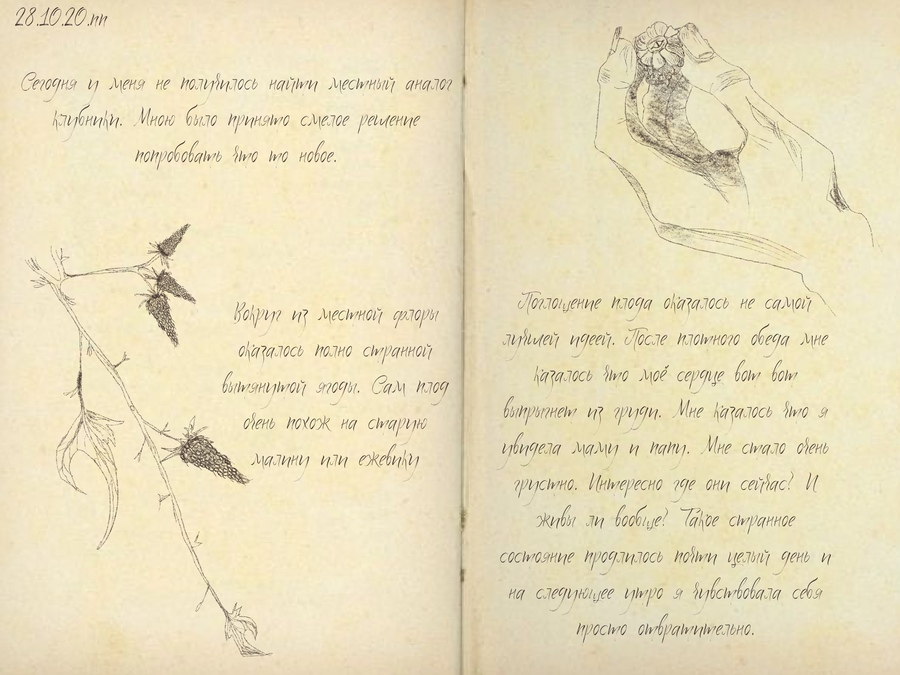 28.10.20.пп
Сегодня у меня не получилось найти местный аналог
клубники. Мною было принято смелое решение
попробовать что то новое.
Вокруг из местной флоры
оказалось полно странной
вытянутой ягоды. Сам плод
очень похож на старую
малину или ежевику
Поглощение плода оказалось не самой
лучшей идеей. После плотного обеда мне
казалось что моё сердце вот вот
выпрыгнет из груди. Мне казалось что я
увидела маму и папу. Мне стало очень
грустно. Интересно где они сейчас? И
живы ли вообще? Такое странное
состояние продлилось почти целый день и
на следующее утро я чувствовала себя
просто отвратительно.